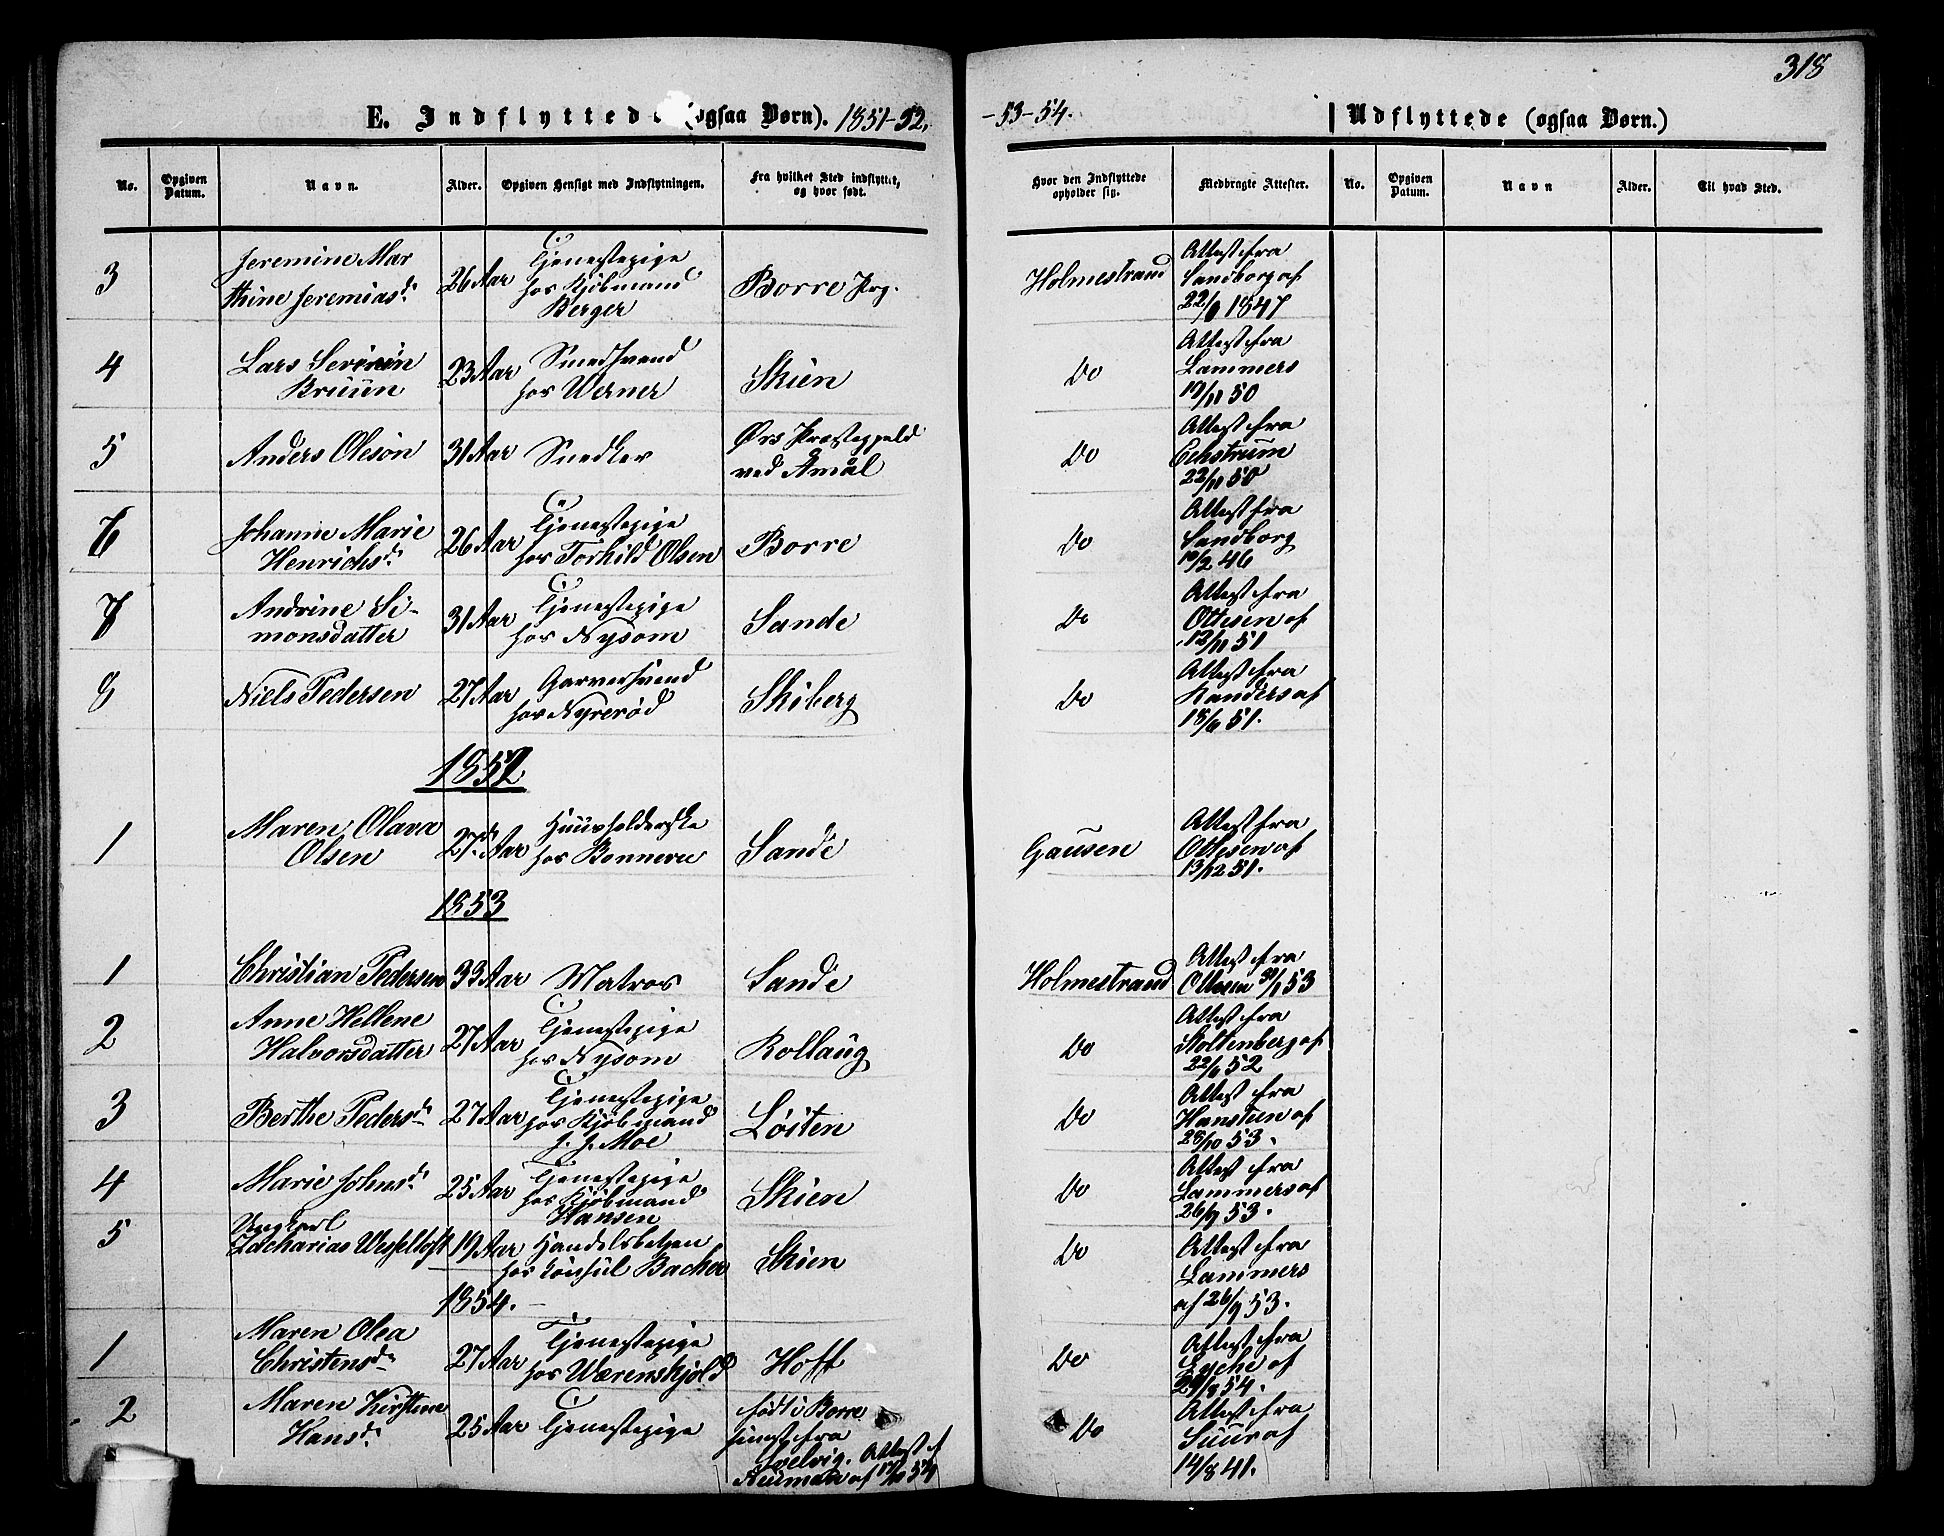 318
E. Indflyttede (ogsaa Børn). 1851-52. -53-54. Udflyttede (ogsaa Børn.)
No. Opgiven Datum. Navn. Alder. Opgiven Hensigt med Indflytningen. Fra hvilket Sted indflyttet, og hvor født. Hvor den Indflyttede opholder sig. Medbragte Attester. No. Opgiven Datum. Navn Alder. Til hvad Sted.
3 Jeremine Mar
thine Jeremiasd. 26 Aar Tjenestepige
hos Kjøbmand
Berger Borre Prg. Holmestrand Attest fra
Sandborg af
22/9 1847
4 Lars Severin
Bruun 23 Aar Smedsvend
hos Werner Skien Do Attest fra
Lammers
19/11 50
5 Anders Oleson 31 Aar Snedker Ørs Præstegjeld
ved Åmål Do Attest fra
Echstrum
22/11 50
6 Johanne Marie
Henrichsd. 26 Aar Tjenestepige
hos Torkild Olsen Borre Do Attest fra
Sandborg
10/2 46
7 Andrine Si-
monsdatter 31 Aar Tjenestepige
hos Nysom Sande Do Attest fra
Ottesen af
12/11 51
8 Niels Pedersen 27 Aar Garversvend
hos Nyrerød Skiberg Do Attest fra
Randers af
18/6 51.
1852
1 Maren Olava
Olsen 27 Aar Huusholderske
hos Bonnevie Sande Gausen Attest fra
Ottesen af
13/12 51.
1853
1 Christian Pedersen 33 Aar Matros Sande Holmestrand Attest fra
Ottesen 31/1 53
2 Anne Hellene
Halvorsdatter 27 Aar Tjenestepige
hos Nysom Rollaug Do Attest fra
Stoltenberg af
22/6 52
3 Berthe Pedersd. 27 Aar Tjenestepige
hos Kjøbmand
J. J. Moe Løiten Do Attest fra
Hansteen af
28/10 53.
4 Marie Johnsd. 25 Aar Tjenestepige
hos Kjøbmand
Hansen Skien Do Attest fra
Lammers af
26/9 53.
5 Ungkarl
Zacharias Wesseltoft 19 Aar Handelsbetjen
hos Consul Backer Skien Do Attest fra
Lammers
af 26/9 53.
1854.
1 Maren Olea
Christensd. 27 Aar Tjenestepige
hos Wærenskjold Hoff Do Attest fra
af
29/8 54.
2 Maren Kirstine
Hansd. 25 Aar Tjenestepige født i Borre
sidst fra
Svelvig. Attest f
Neuman af 17/10 54 Do Attest fra
Suur af
14/8 41.